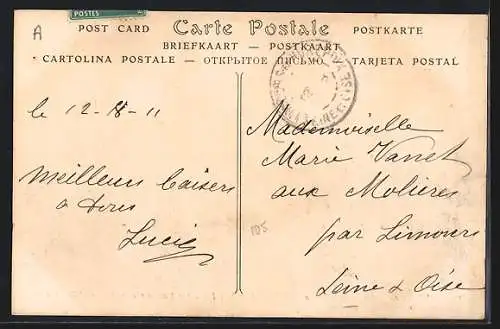 A
POSTES
POST CARD Carte Postale POSTKARTE
BRIEFKAART — POSTKAART
CARTOLINA POSTALE — ОТКРЫТОЕ ПИСЬМО — TARJETA POSTAL
le 12-8-11
Meilleurs baisers
a tous
Lucie
Mademoiselle
Marie Vanet
aux Molieres
par Limours
Seine & Oise
105